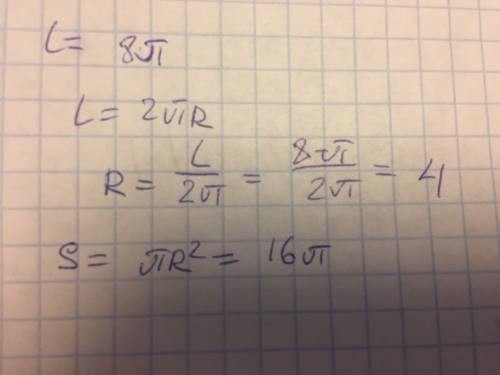 L = 8π
L = 2πR
R = L/2π = 8π/2π = 4
S = πR² = 16π